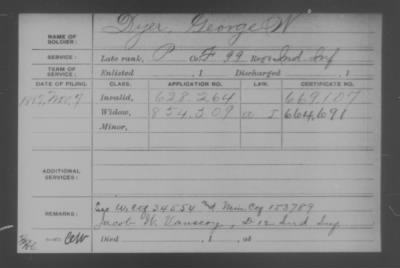 NAME OF SOLDIER: Dyer, George W
SERVICE: Late rank, P Co. F 99 Reg't Ind Inf
TERM OF SERVICE: Enlisted , 1 Discharged , 1
DATE OF FILING. CLASS. APPLICATION NO. LAW. CERTIFICATE NO.
Invalid, 628,264 669107
Widow, 854,509 664,691
Minor,
ADDITIONAL SERVICES:
REMARKS: W. Ctf 34554 Min Ctf 153789
Jacob W. 12 Ind Inf
Died , 1 , at